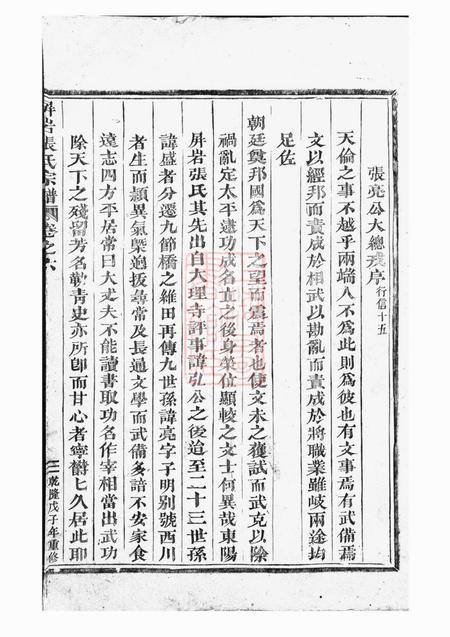 張亮公大總戎序 行信十五
天倫之事不越乎兩端人不為此則為彼也有文事焉有武備焉
文以經邦而責成於相武以勘亂而責成於將職業雖岐兩途均
足佐
朝廷奠邦國為天下之望而震焉者也使文未之獲試而武克以除
禍亂定太平建功成名立之後身榮位顯較之文士何異哉東陽
屏岩張氏其先出自大理寺評事諱弘公之後迨至二十三世孫
諱盛者分遷九節橋之維田再傳九世孫諱亮字子明別號西川
者生而穎異氣槩逈拔尋常及長通文學而武備多諳不安家食
遠志四方平居常曰大丈夫不能讀書取功名作宰相當出武功
除天下之殘留芳名歡青史亦所卽而甘心者寧鬱乜久居此聊
屏岩張氏宗譜 卷之六
乾隆戊子年重修